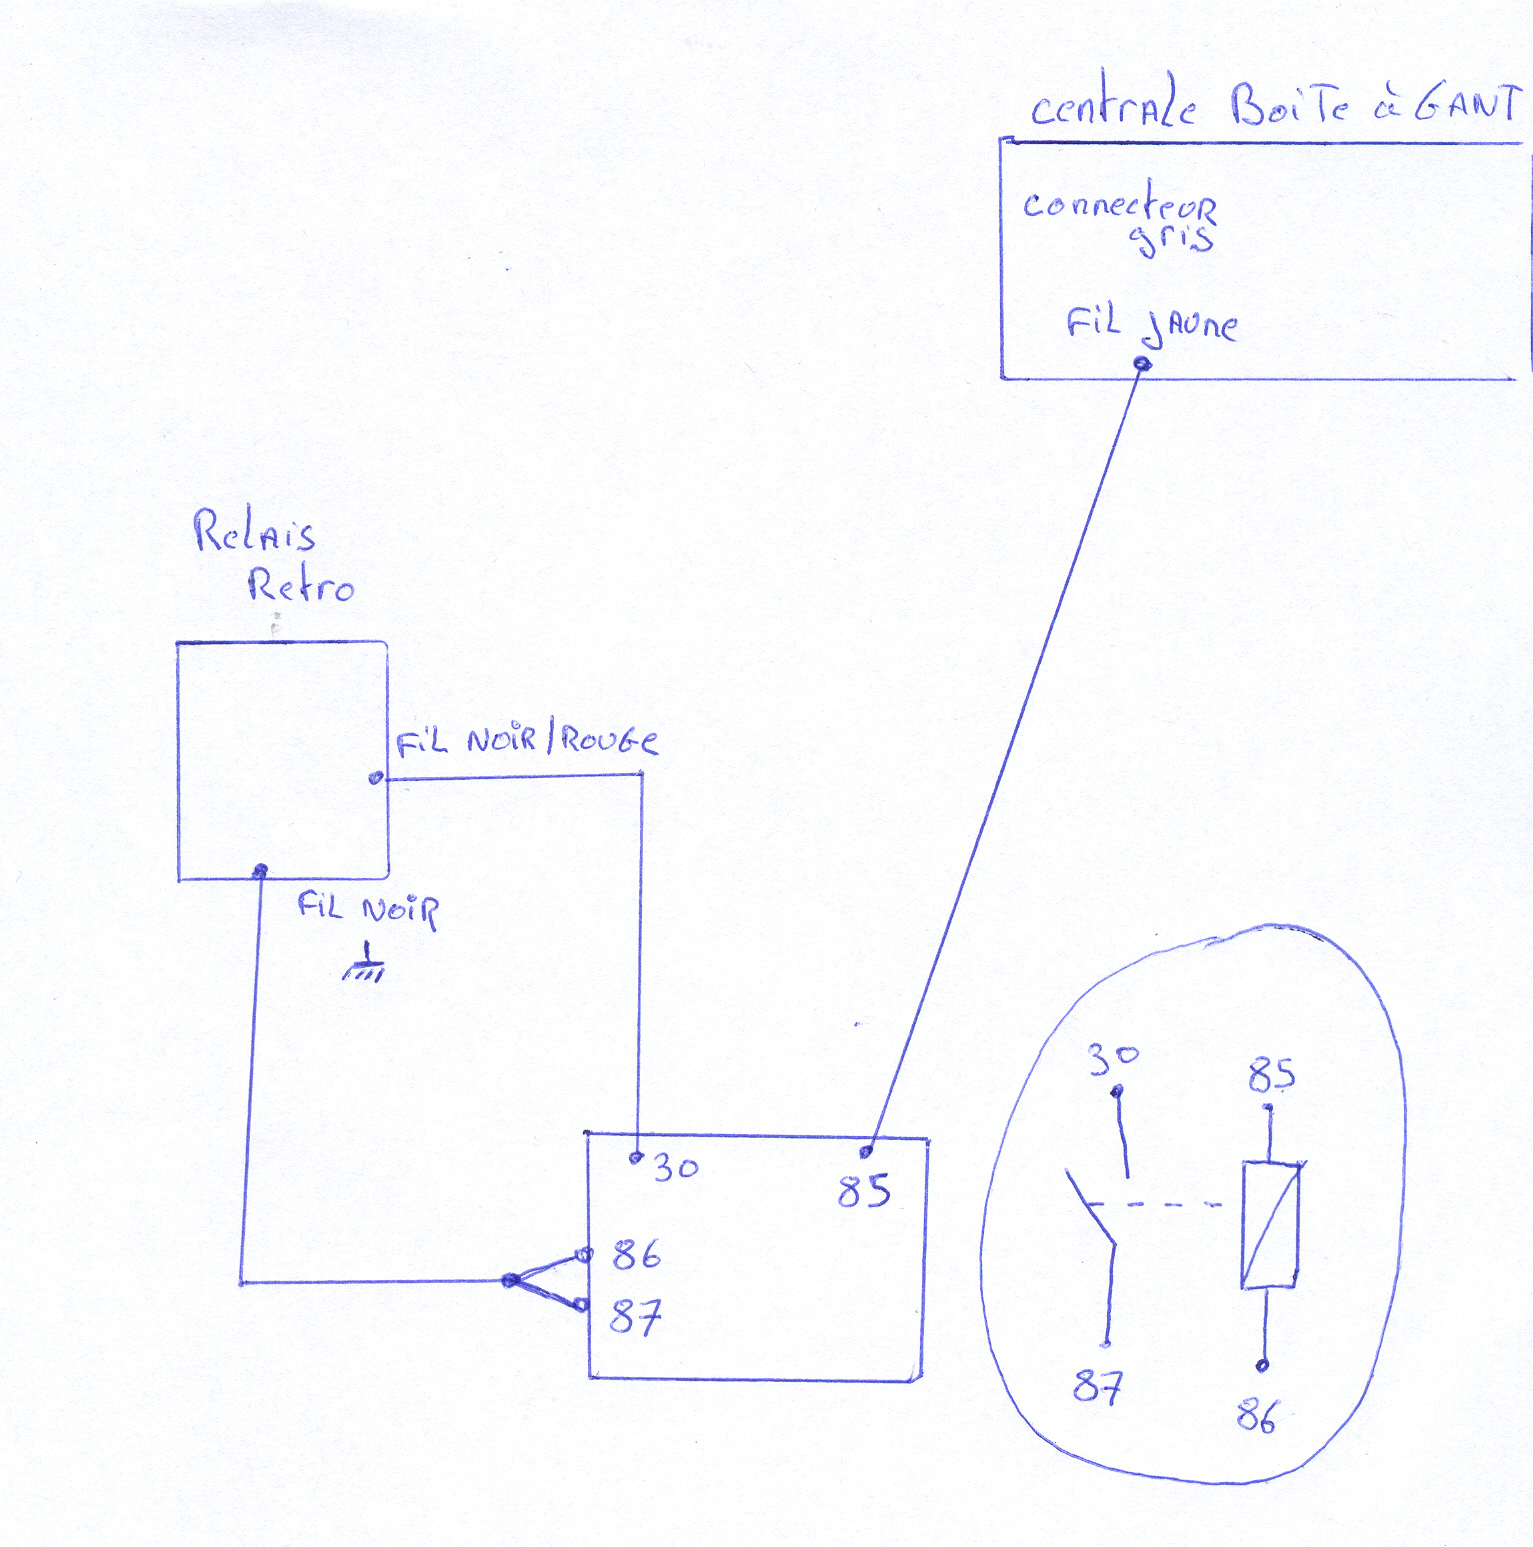 centrale Boite à GANT
connecteur
gris
Fil jaune
Relais
Retro
Fil Noir/Rouge
Fil Noir
30
85
86
87
30
85
87
86